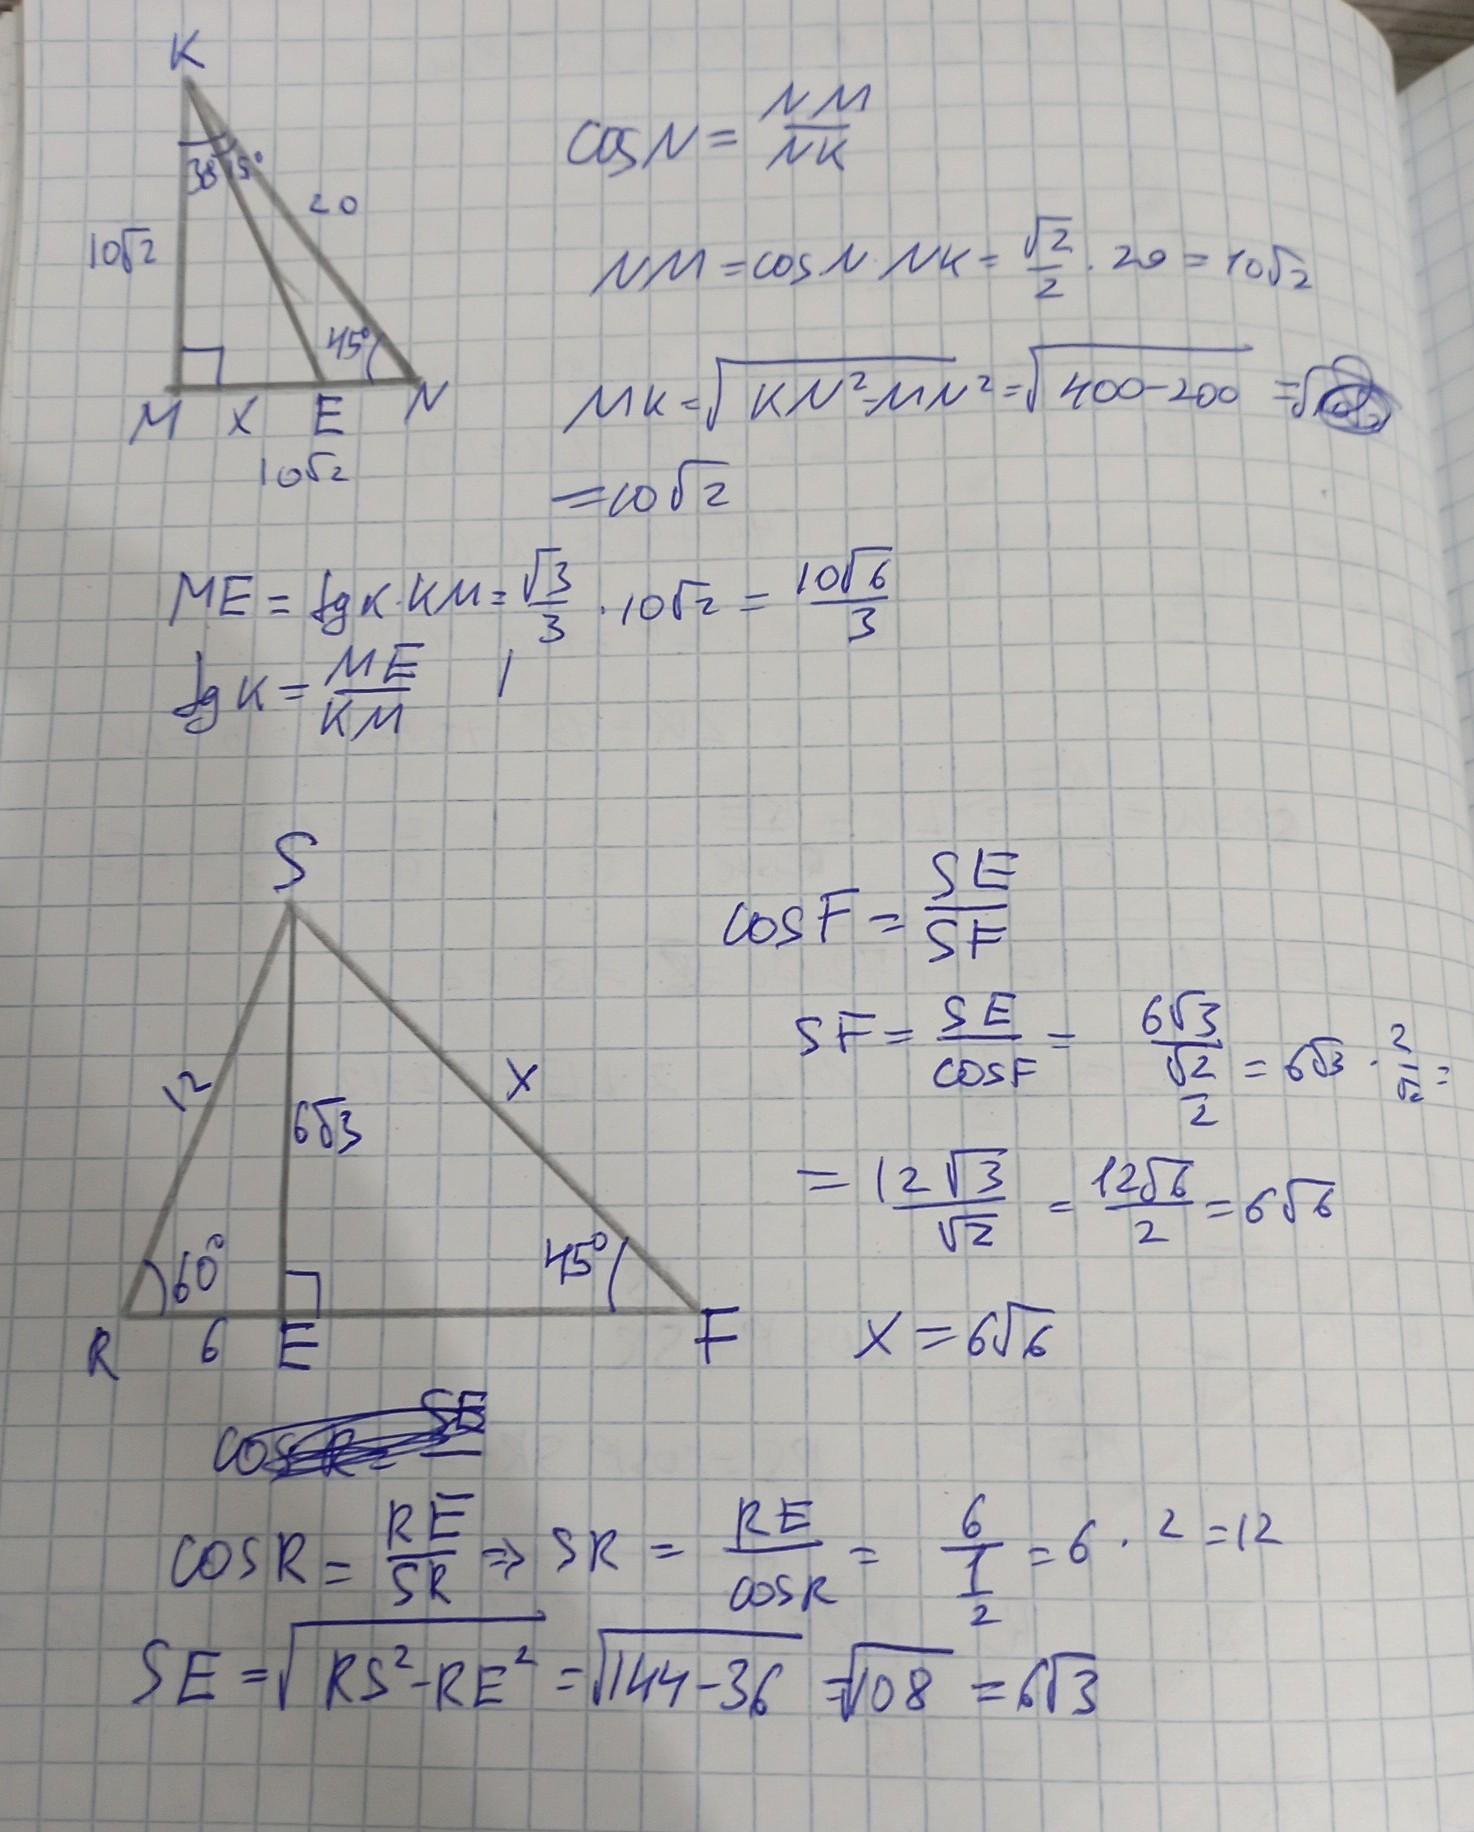 K
30° 15°
20
10√2
45°
M x E N
10√2
cosN = NM/NK
NM = cosN · NK = √2/2 · 20 = 10√2
MK = √KN²-MN² = √400-200 =
= 10√2
ME = tgK · KM = √3/3 · 10√2 = 10√6/3
tgK = ME/KM
S
12
6√3
x
60°
45°
R 6 E F
cosF = SE/SF
SF = SE/cosF = 6√3/√2/2 = 6√3 · 2/√2 =
= 12√3/√2 = 12√6/2 = 6√6
x = 6√6
cosR = SE
cosR = RE/SR => SR = RE/cosR = 6/1/2 = 6 · 2 = 12
SE = √RS²-RE² = √144-36 = √108 = 6√3